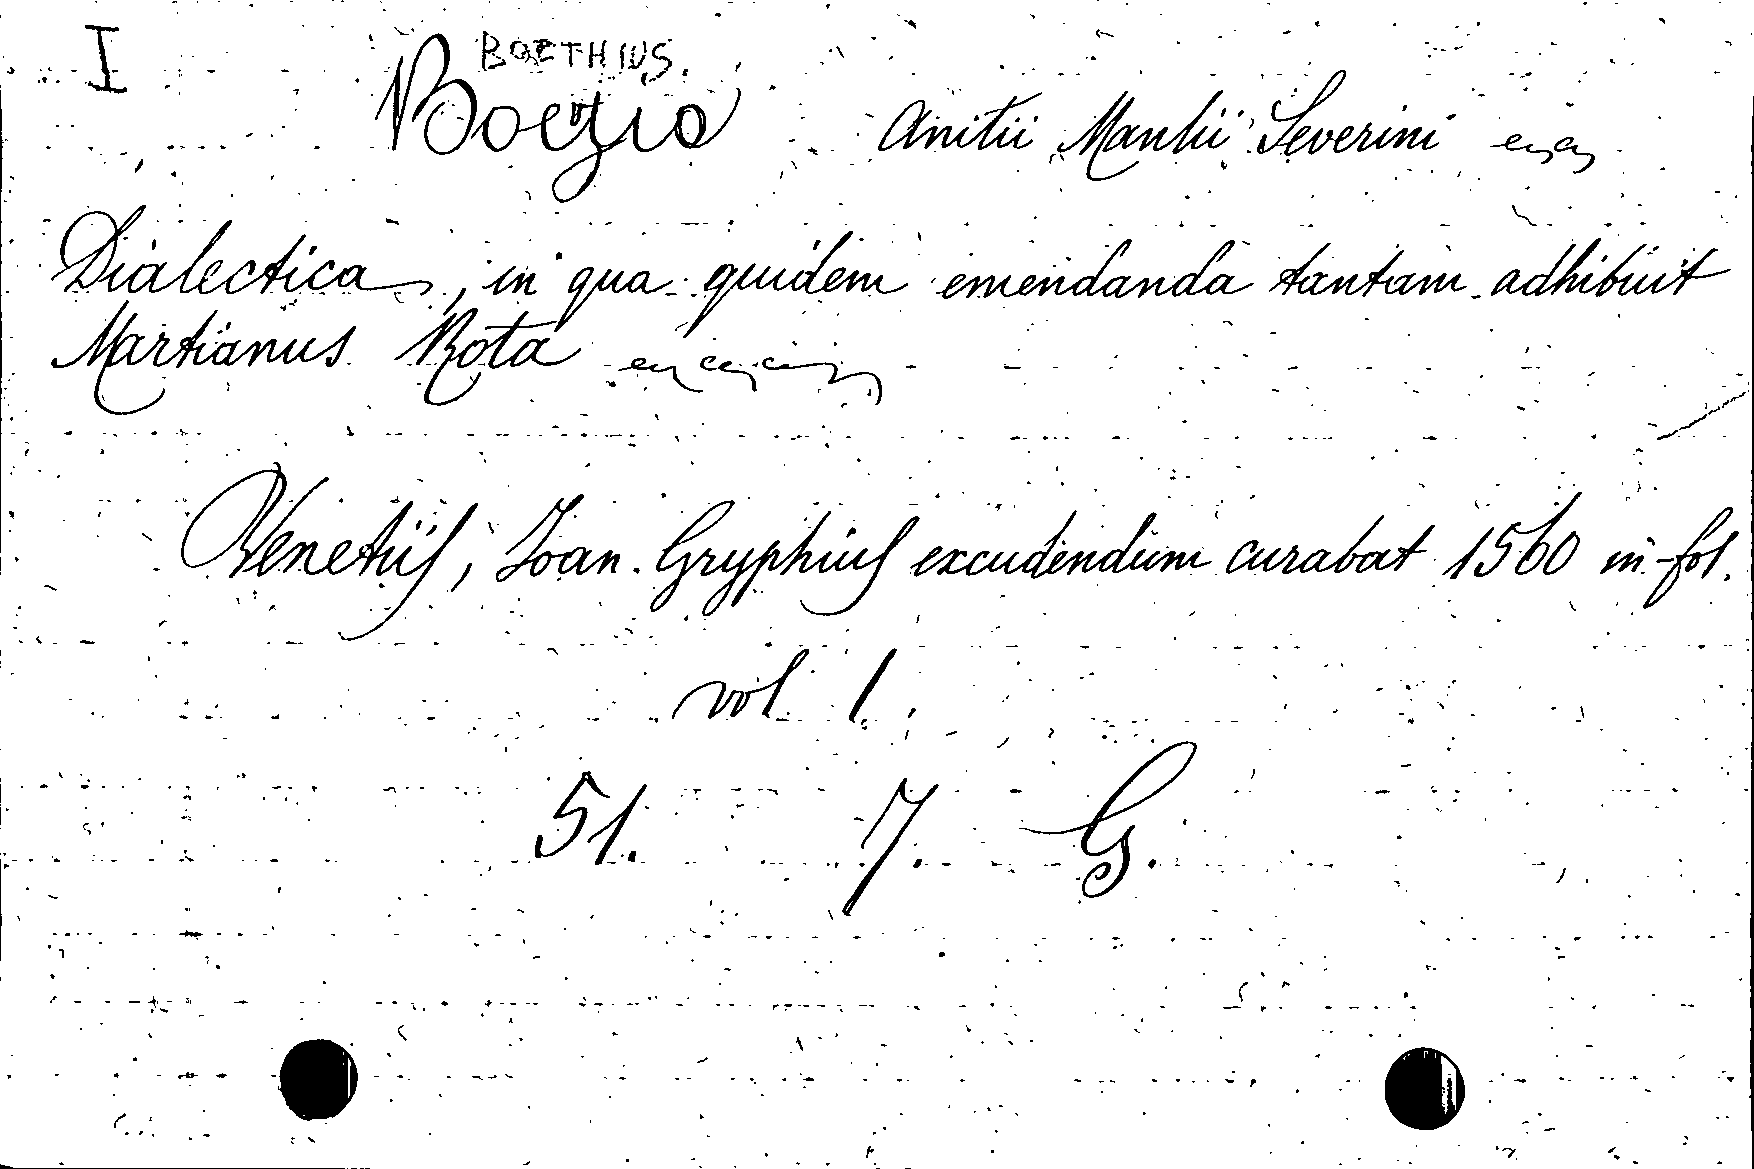 I
BOETHIUS.
Boezio Anitii Manlii Severini
Dialectica, in qua quidem emendanda tantam adhibuit
Martianus Rota
Venetiis, Ioan. Gryphius excudendum curabat 1560 in-fol.
vol 1.
51. 7. G.